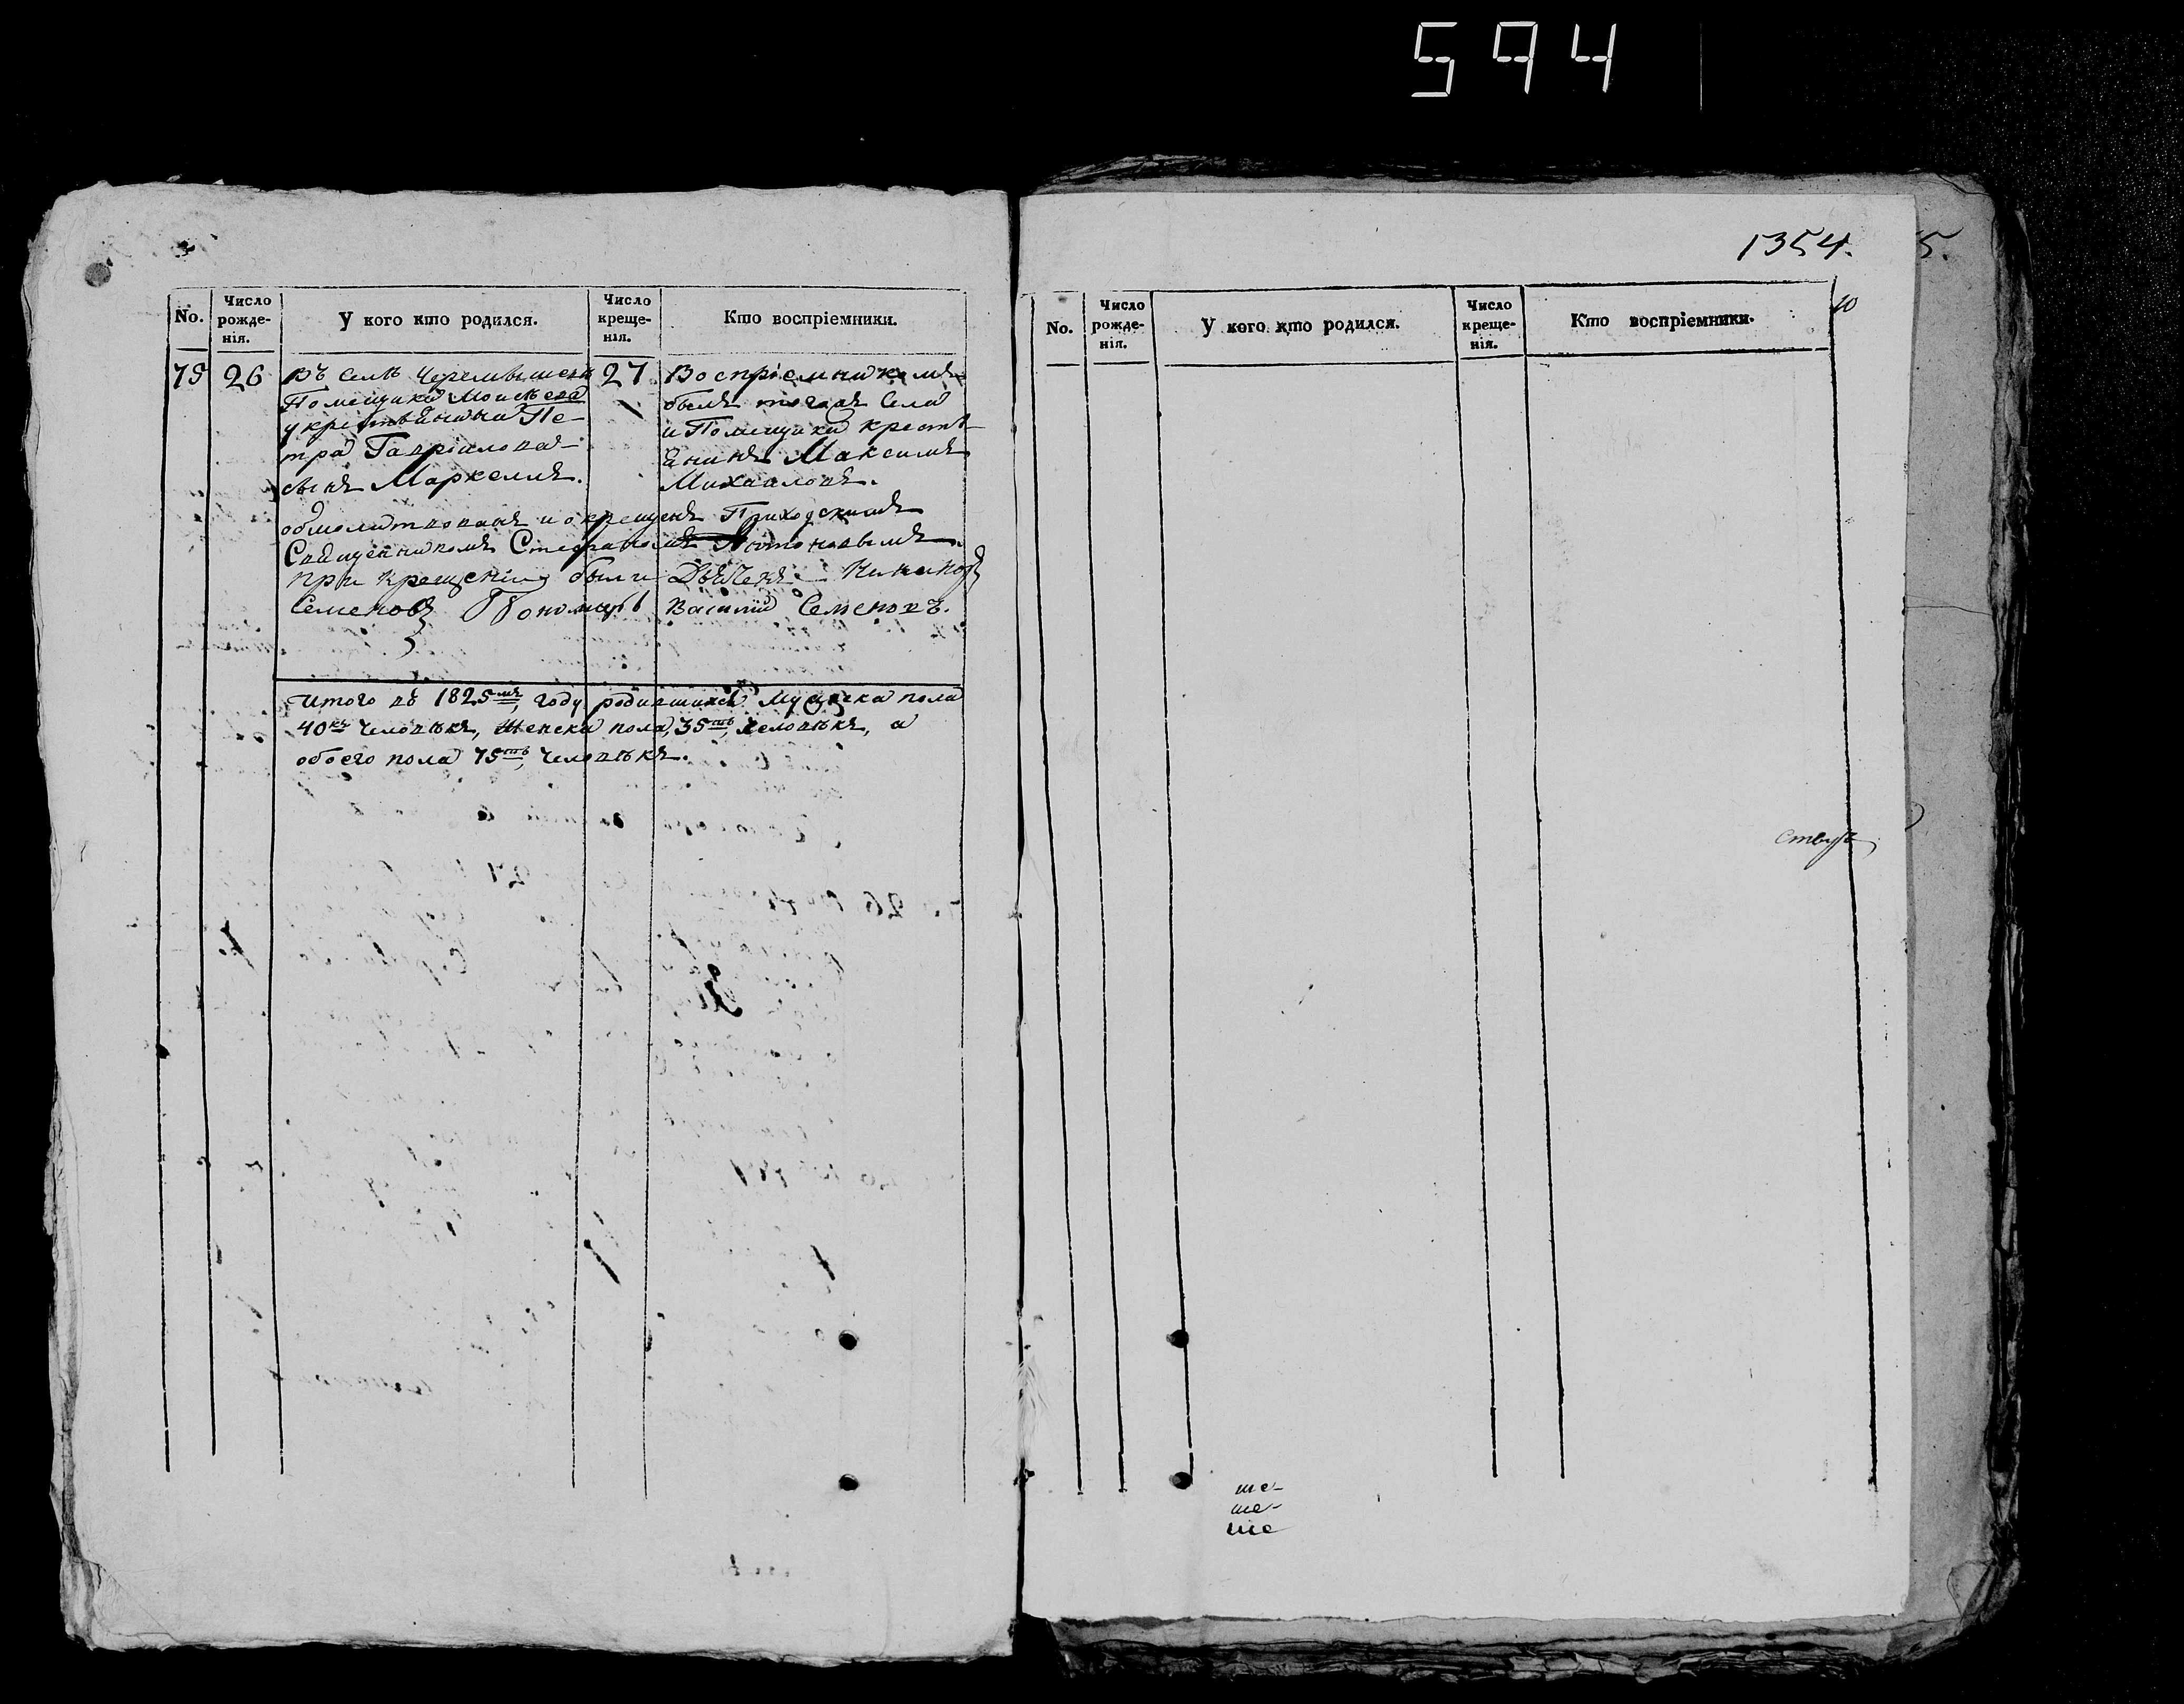 594
No.
Число рожде-нія.
У кого кто родился.
Число креще-нія.
Кто воспріемники.
75
26
Въ селѣ Черемышевѣ
Помещика Моисѣева
у крестьянина Пе-
тра Гавріилова
сынъ Маркелъ.
27
Воспріемникомъ
былъ тогожъ Села
и Помещика крестѣ-
янинъ Максимъ
Михаиловъ.
обмолитвованъ и окрещенъ Приходскимъ
Священникомъ Стефаномъ Антоновымъ.
при крещеніи были Дьячекъ Никиноръ
Семеновъ Пономарь Василий Семеновъ.
Итого въ 1825мъ, году родившихся Мужеска пола
40къ человѣкъ, Женска пола, 35ть, человѣкъ, а
обоего пола 75ть, человѣкъ.
1354.
5.
No.
Число рожде-нія.
У кого кто родился.
Число креще-нія.
Кто воспріемники.
ше-
ше-
ше